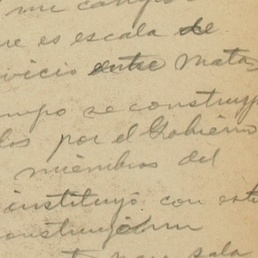 mi campo
ue es escala de
vicio entre Mata
mpo se construyó
los por el Gobierno
miembros del
instituyó con este
construyó un
sala